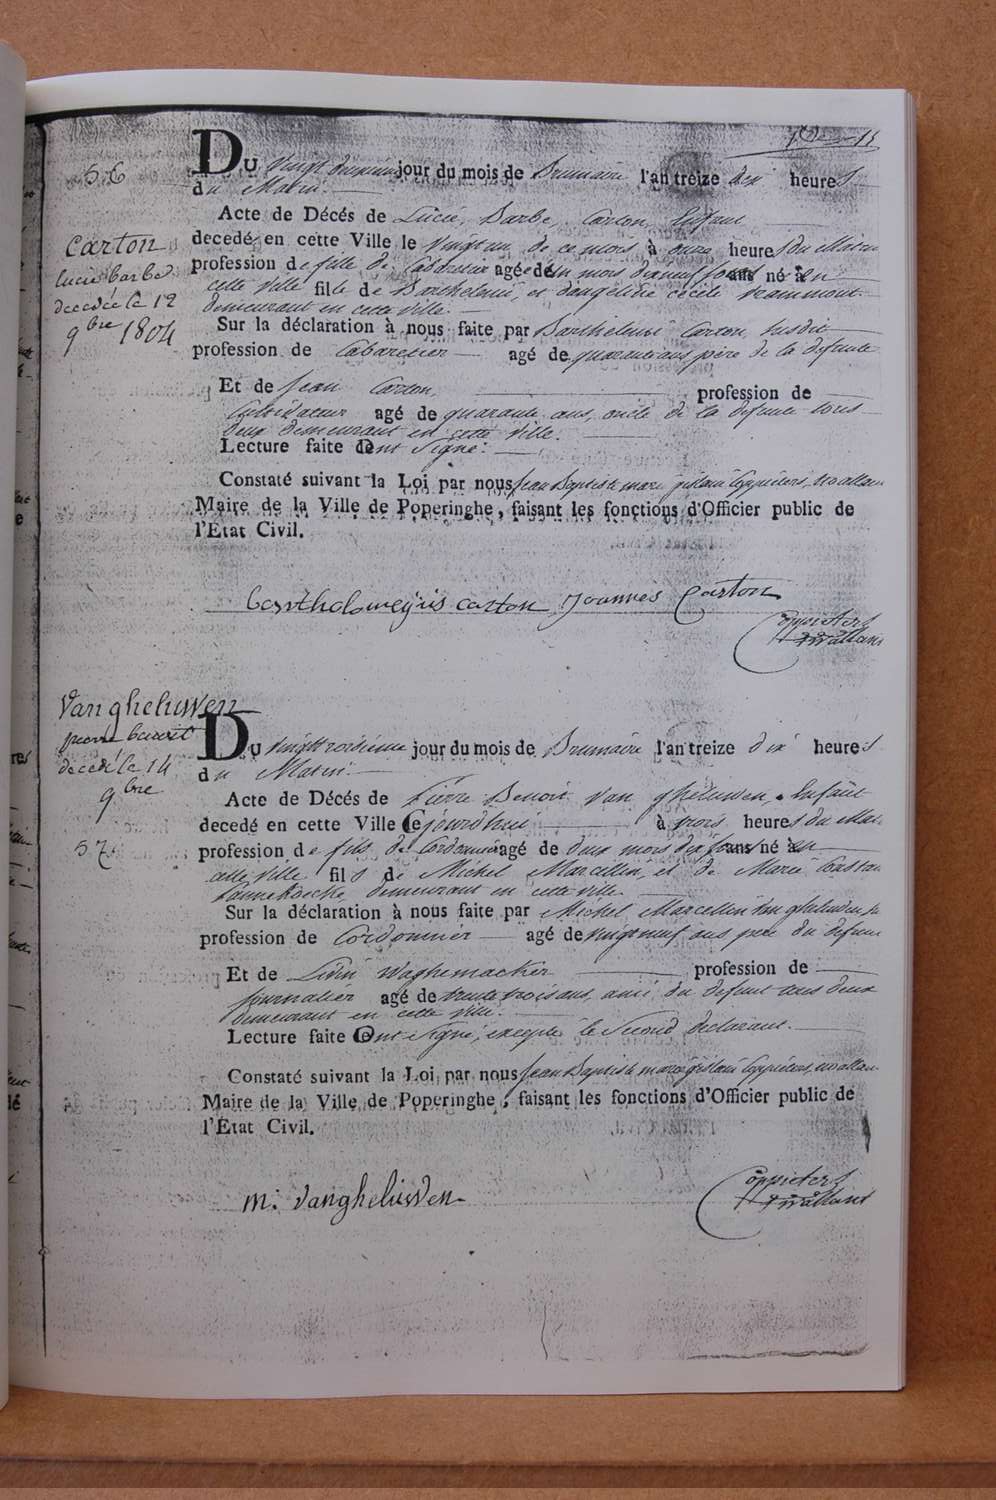 56
Carton
lucie barbe
decedée le 12
9bre 1804
Du Vingt deuxieme jour du mois de Brumaire l'an treize dix heures
du Matin.
Acte de Décés de Lucie Barbe Carton, Enfant
decedé en cette Ville le vingt un de ce mois à onze heures du Matin
profession de fille de Cabaretier agée d'un mois dixneuf jours né en
cette ville fille de Barthelemi, et d'angeline cécile
demeurant en cette ville.
Sur la déclaration à nous faite par Barthelemi Carton, susdit
profession de Cabaretier agé de quarante ans père de la defunte
Et de Jean Carton, profession de
Cultivateur agé de quarante ans, oncle de la defunte tous
deux demeurant en cette ville.
Lecture faite ont Signé.
Constaté suivant la Loi par nous Jean Baptiste marie ghislain Coppieters, wallan
Maire de la Ville de Poperinghe, faisant les fonctions d'Officier public de
l'État Civil.
bartholomeyus carton Joannes Carton
Coppieters
twallant
Vangheluwen
pierre benoit
decedé le 14
9bre
57
Du Vingttroisieme jour du mois de Brumaire l'an treize dix heures
du Matin.
Acte de Décés de Pierre Benoit Van gheluwen, Enfant
decedé en cette Ville Cejourdhui à trois heures du Mat
profession de fils de Cordonnier agé de deux mois dix jours né en
cette ville fils de Michel Marcellin, et de Marie
demeurant en cette ville.
Sur la déclaration à nous faite par Michel Marcellin Van gheluwen
profession de Cordonnier agé de vingtneuf ans père du defunt
Et de Livin Waghemacker profession de
Journalier agé de trente trois ans, ami du defunt tous deux
demeurant en cette ville.
Lecture faite ont Signé, excepté le Second declarant.
Constaté suivant la Loi par nous Jean Baptiste marie ghislain Coppieters, wallan
Maire de la Ville de Poperinghe, faisant les fonctions d'Officier public de
l'État Civil.
m: Vangheluwen
Coppieters
twallant